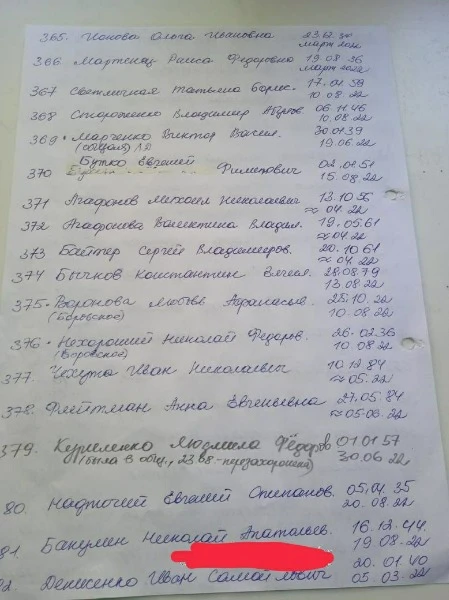 365. Ионова Ольга Ивановна 23.12.
март 2022
366 Мартенец Раиса Федоровна 19.08 36
март 2022
367 Светличная Татьяна Борис. 17.01 59
10.08.22
368 Владимир 06.11.46
10.08.22
369 • Марченко Виктор Васил. 30.01 39
(общая) 19.06.22
Бутко Евгений
370 Филипович 02.02.51
15.08.22
371 Агафонов Михаил Николаевич 13.10 56
≈ 04.22
372 Агафонова Валентина Владим. 19.05.61
≈ 04.22
373 Сергей Владимиров. 20.10 61
≈ 04.22
374 Бычков Константин 28.08.79
13.08 22
375 • Воронова Любовь Афанасьев. 25.10.22
(Боровское) 10.08.22
376 • Нехороший Николай Федоров. 26.02.36
(Боровское) 10.08.22
377. Иван Николаевич 10.12.84
≈ 05.22
378. Флейтман Анна Евгеньевна 27.05.84
≈ 05.08.22
379. Куриленко Людмила Фёдоров 01.01 57
(была в общ., 23.08.-перезахоронена) 30.06 22
80. Надточий Евгений Степанов. 05.04.35
20.08.22
81. Бакулин Николай Анатольев. 16.12.44.
19.08.22
82. Денисенко Иван Самойлович 20.01.40
05.03.22